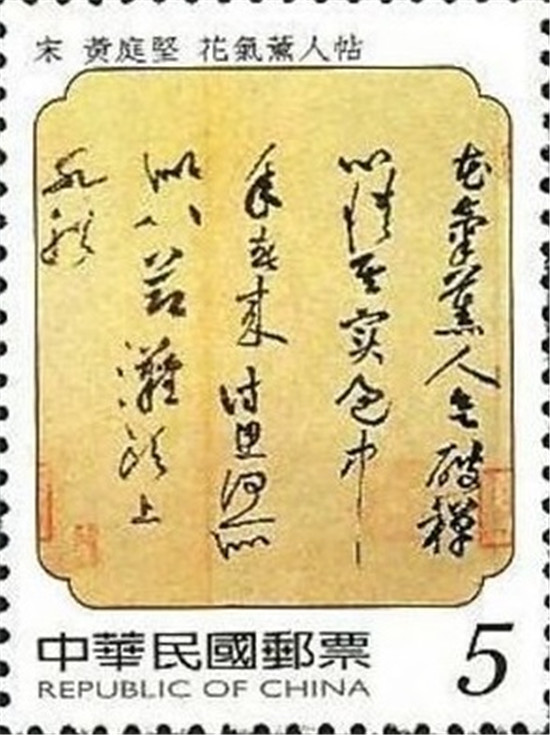 宋 黃庭堅 花氣薰人帖
花氣薰人欲破禪
心情其實過中
年春來詩思何所
似八節灘頭上
水船
中華民國郵票
REPUBLIC OF CHINA
5